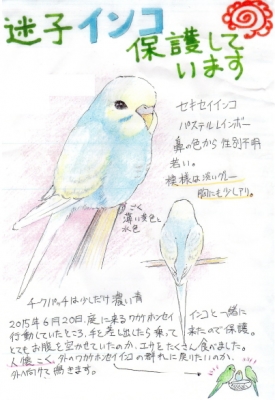 迷子インコ
保護して
います
セキセイインコ
パステルレインボー
鼻の色から性別不明
若い。
模様は淡いグレー
胸にも少しアリ。
ごく
薄い黄色と
水色
チークパッチは少しだけ濃い青
2015年6月20日、庭に来るワカケホンセイインコと一緒に
行動していたところ、手を差し出したら乗って来たので保護。
とてもお腹を空かせていたのか、エサをたくさん食べました。
人懐こく、外のワカケホンセイインコの群れに戻りたいのか、
外へ向けて鳴きます。